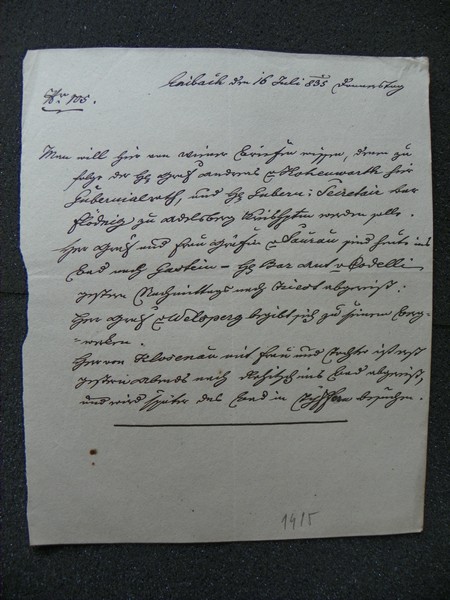 Laibach den 16 Juli 835 Donnerstag
Nr. 105.
Man will hier von Wiener Briefen wissen, denen zu
folge der H. Graf Andreas v Hohenwarth hier
Gubernialrath, und H. Gubern: Secretär Bar
Flödnig zu Adelsberg werden solle.
Herr Graf und Frau Gräfin v Saurau sind heute ins
Bad nach Gastein – H. Bar Ant v Codelli
gestern Nachmittags nach Triest abgereist.
Herr Graf v Welsperg begibt sich zu seinen Berg-
-werken.
Herr von Klosenau mit Frau und Tochter ist erst
gestern Abends nach Rohitsch ins Bad abgereist,
und wird später das Bad in Tüffern besuchen.
1915